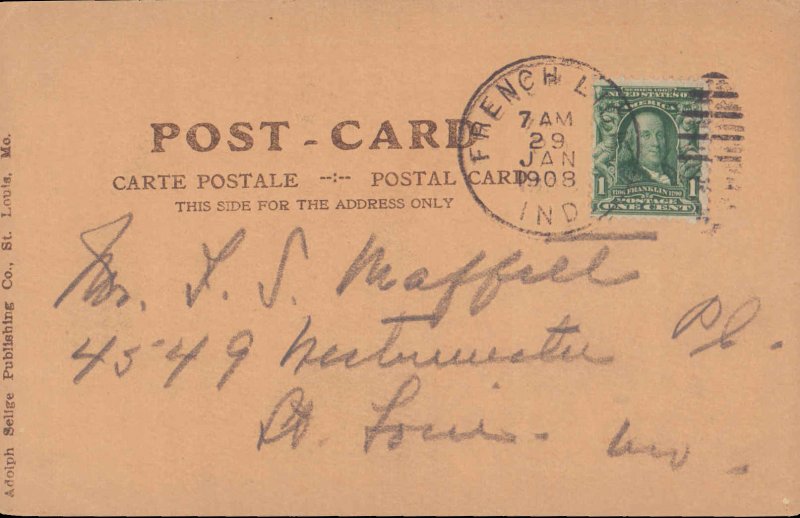 POST-CARD
CARTE POSTALE --:-- POSTAL CARD
THIS SIDE FOR THE ADDRESS ONLY
FRENCH LICK
7 AM
29
JAN
1908
IND
SERIES 1902
UNITED STATES OF AMERICA
1 1706 FRANKLIN 1790 1
POSTAGE
ONE CENT
Mr. F. S. Maffitt
4549 Westminster Pl.
St. Louis. Mo.
Adolph Selige Publishing Co., St. Louis, Mo.